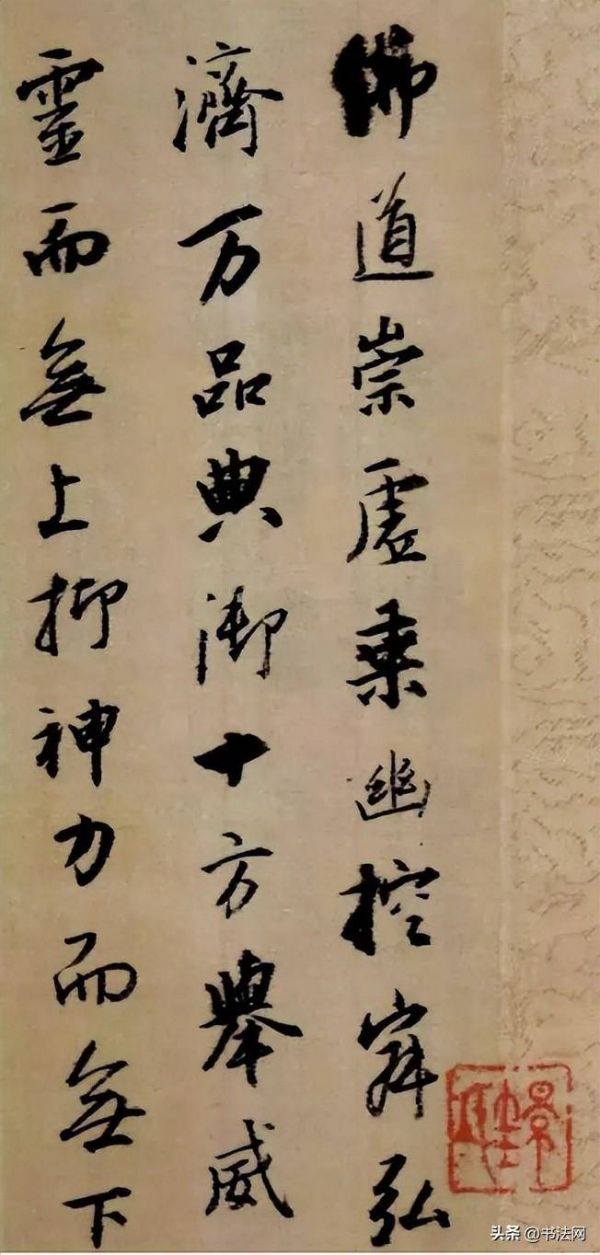 佛道崇虛乘幽控寂弘
濟万品典御十方舉威
靈而無上抑神力而無下
头条 @书法网